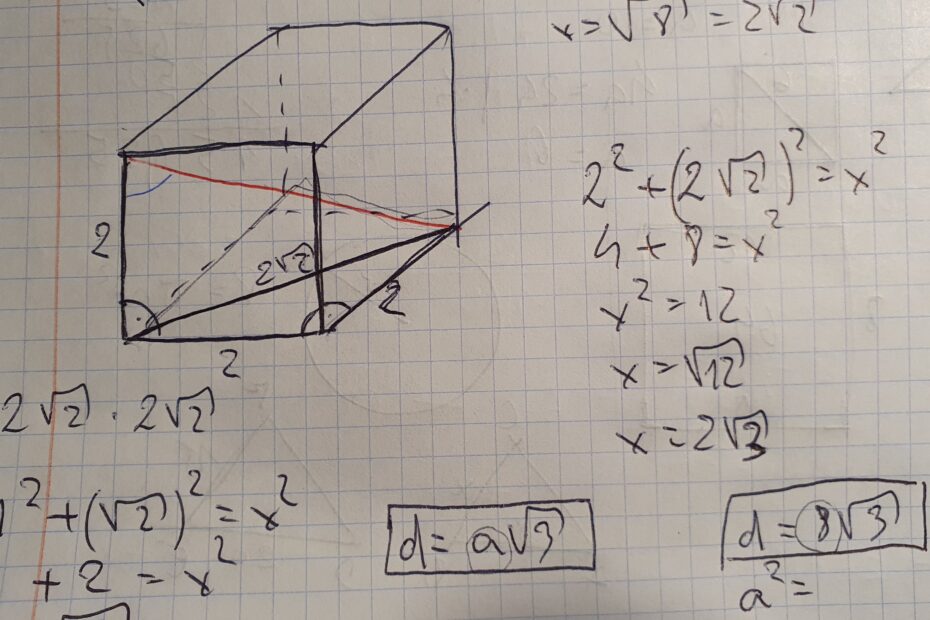 x = √8 = 2√2
2² + (2√2)² = x²
4 + 8 = x²
x² = 12
x = √12
x = 2√3
2
2√2
2
2
2√2 · 2√2
² + (√2)² = x²
+ 2 = x²
d = a√3
d = 8√3
a² =